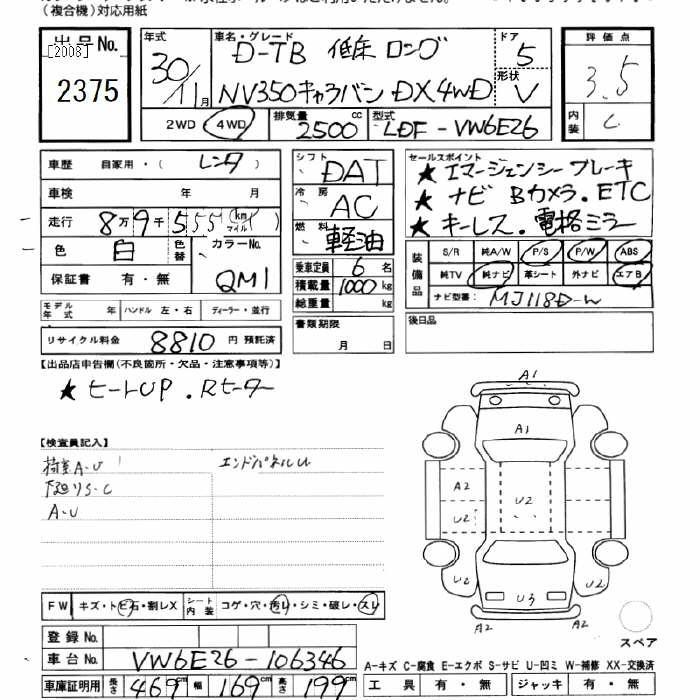 (複合機)対応用紙
出品No.
[2008]
2375
年式
30/11月
車名・グレード
D-TB 低床 ロング
NV350キャラバン DX 4WD
ドア
5
形状
V
評価点
3.5
内装
C
2WD 4WD
排気量
2500cc
型式
LDF-VW6E26
車歴 自家用・(レンタ)
車検 年 月
走行 8万9千555(km マイル)
色 白 色替 カラーNo. QM1
保証書 有・無
モデル年式 年 ハンドル 左・右 ディーラー・並行
リサイクル料金 8810円 預託済
シフト DAT
冷房 AC
燃料 軽油
乗車定員 6名
積載量 1000kg
総重量 kg
書類期限
月 日
セールスポイント
★ エマージェンシーブレーキ
★ ナビ Bカメラ.ETC
★ キーレス.電格ミラー
装備品
S/R 純A/W P/S P/W ABS
純TV 純ナビ 革シート 外ナビ エアB
ナビ型番: MJ118D-W
後日品
【出品店申告欄(不良箇所・欠品・注意事項等)】
★ ヒートUP.Rヒーター
【検査員記入】
荷室A-U エンドパネルU
下廻りS-C
A-U
A1
A1
A2
U2
U2
U2
U2
U3
A2
A2
スペア
FW キズ・トビ石・割レX シート内装 コゲ・穴・汚レ・シミ・破レ・スレ
登録No.
車台No. VW6E26-106346
車庫証明用 長さ 469cm 幅 169cm 高さ 199cm
A-キズ C-腐食 E-エクボ S-サビ U-凹ミ W-補修 XX-交換済
工具 有・無 ジャッキ 有・無